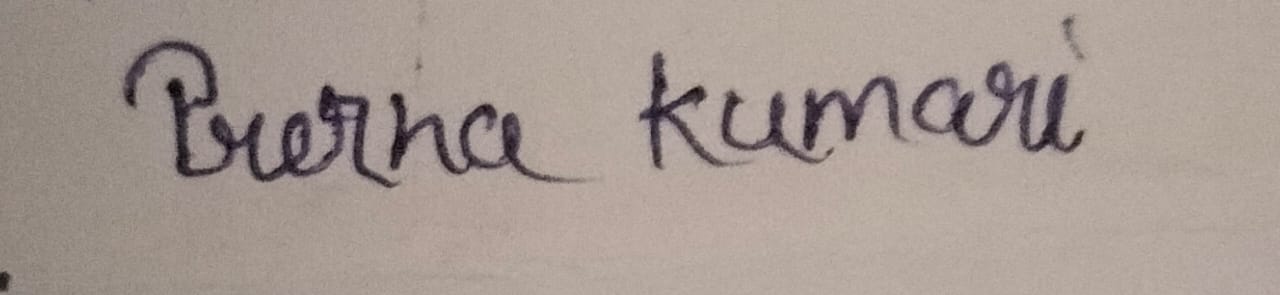 Prerna kumari